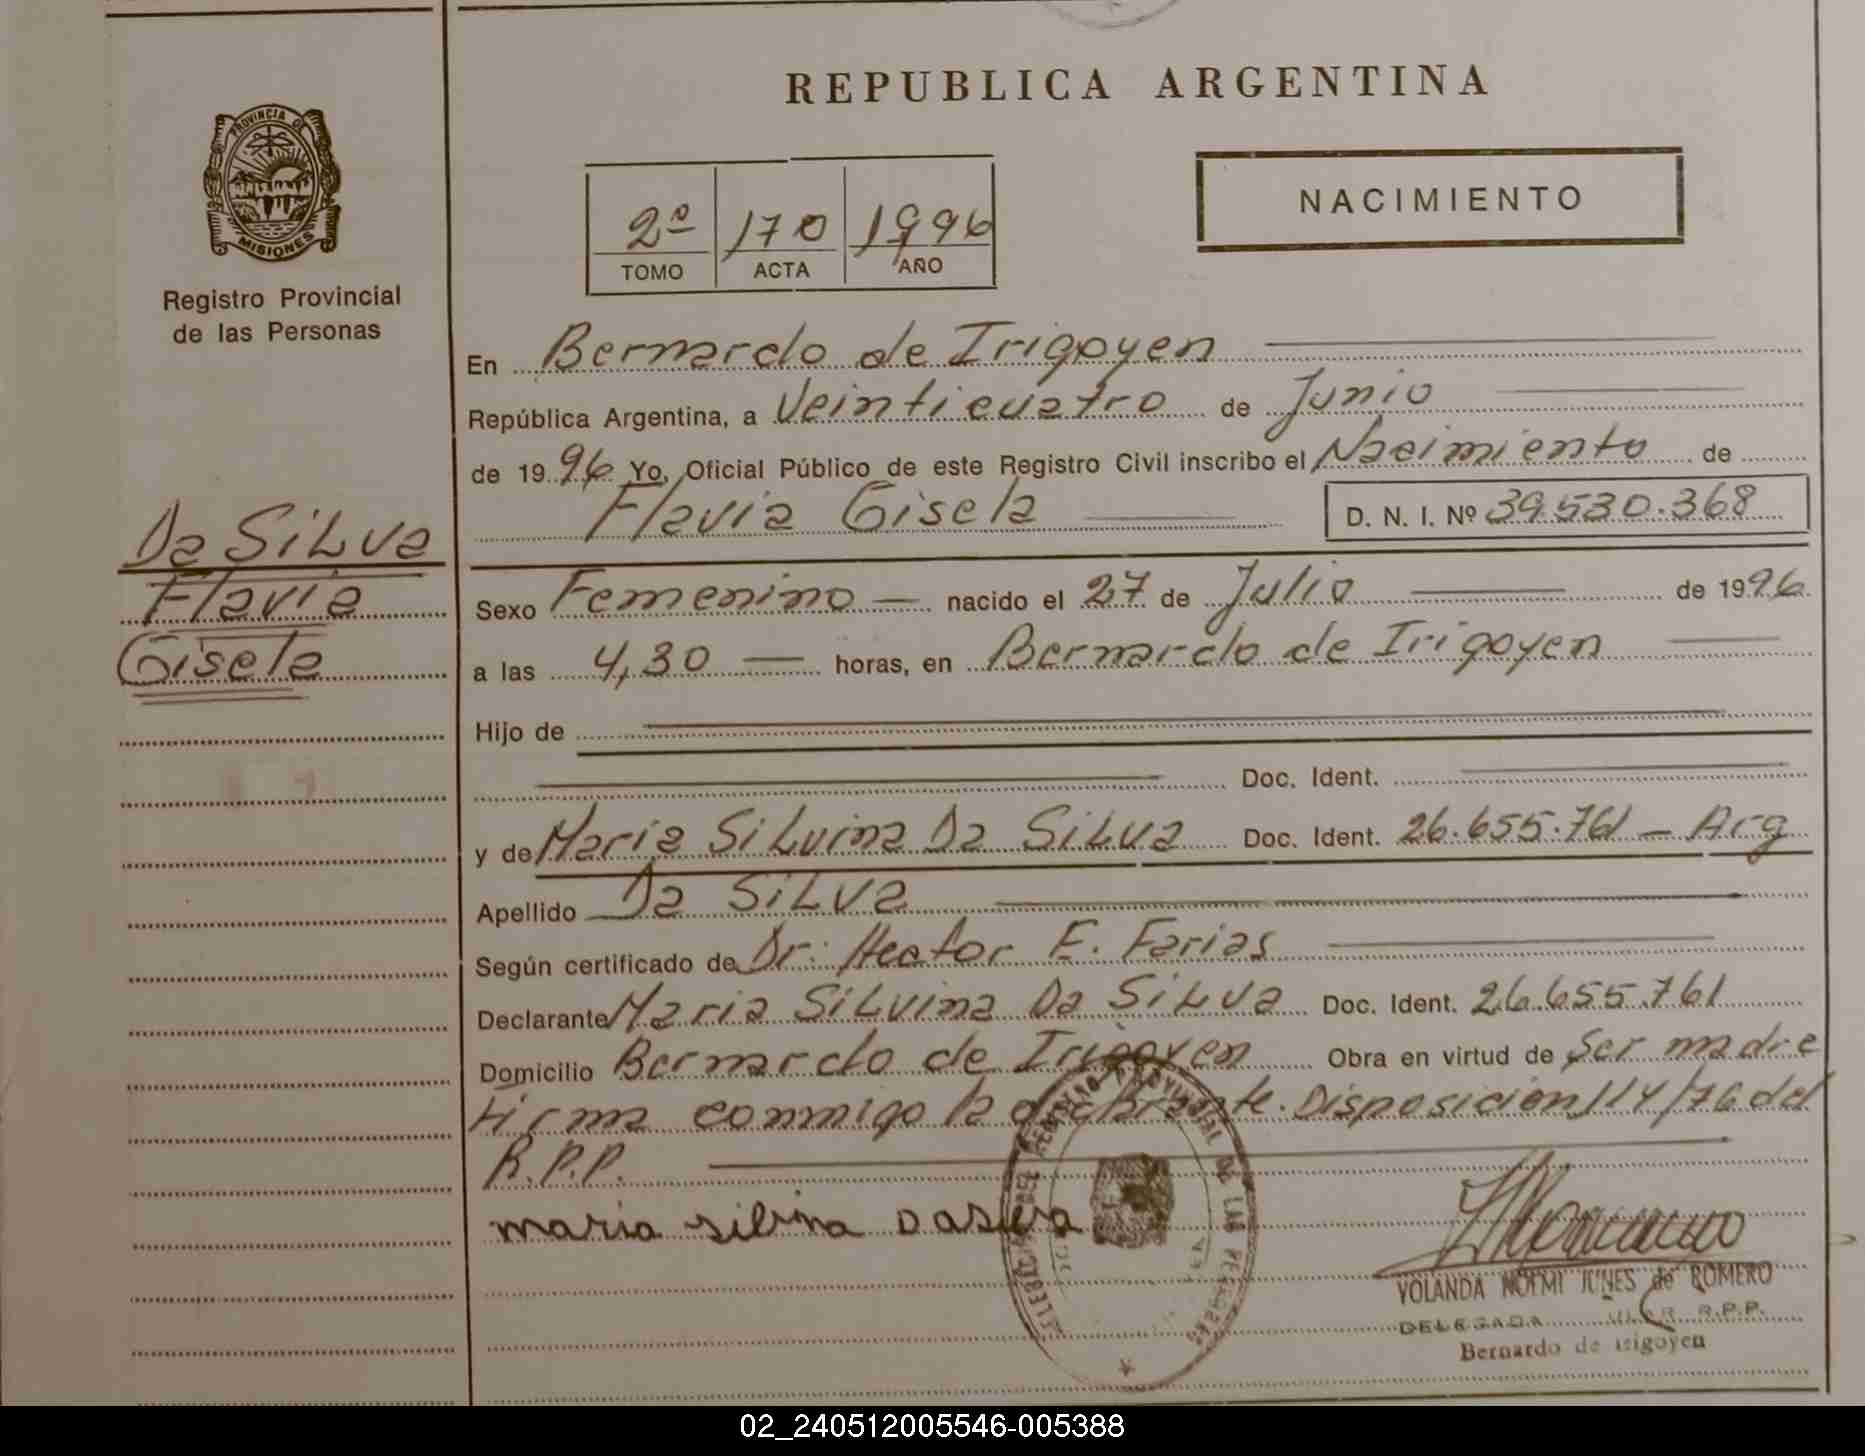 REPUBLICA ARGENTINA
PROVINCIA DE
MISIONES
Registro Provincial
de las Personas
2º 170 1996
TOMO ACTA AÑO
NACIMIENTO
En Bernardo de Irigoyen
República Argentina, a Veinticuatro de Junio
de 1996 Yo, Oficial Público de este Registro Civil inscribo el Nacimiento de
Flavia Gisela D. N. I. Nº 39.530.368
Da SiLva
Flavia
Gisela
Sexo Femenino — nacido el 27 de Julio de 1996
a las 4,30 — horas, en Bernardo de Irigoyen
Hijo de
Doc. Ident.
y de Maria SiLvina Da SiLva Doc. Ident. 26.655.761 — Arg
Apellido Da SiLva
Según certificado de Dr: Hector E. Farias
Declarante Maria SiLvina Da SiLva Doc. Ident. 26.655.761
Domicilio Bernardo de Irigoyen Obra en virtud de Ser madre
Firma conmigo la declarante. Disposición 114/76 del
R.P.P.
maria silvina dasilva
REGISTRO PROVINCIAL DE LAS PERSONAS
YOLANDA NOEMI JUNES de ROMERO
DELEGADA R.P.P.
Bernardo de Irigoyen
02_240512005546-005388